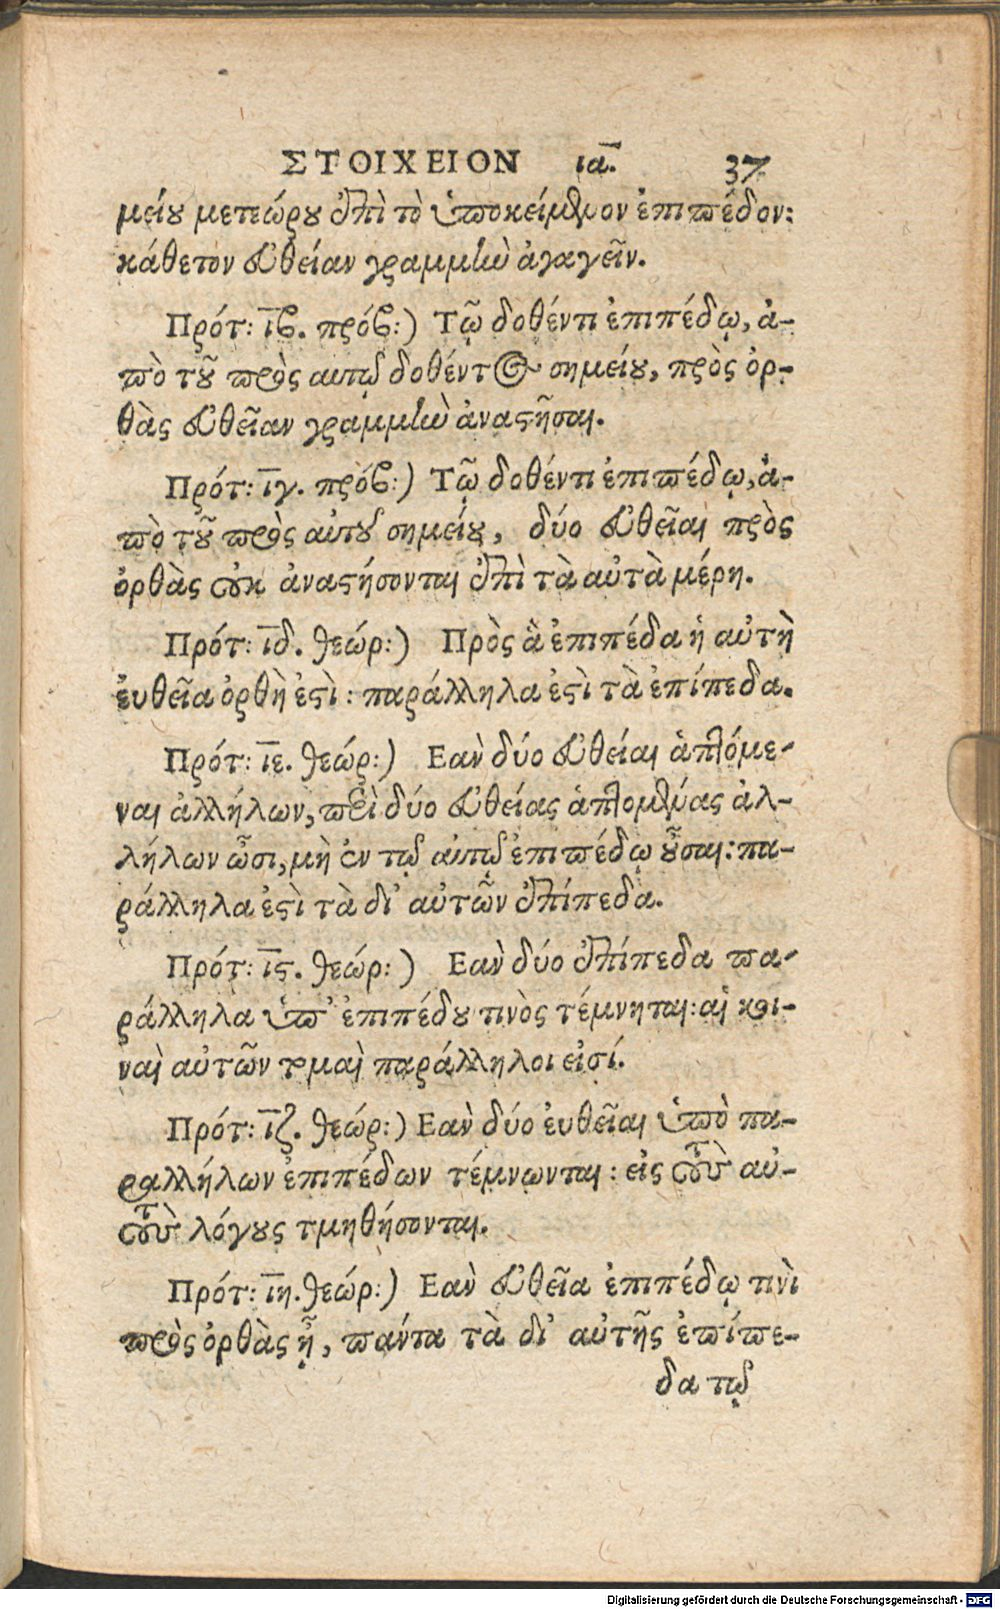 ΣΤΟΙΧΕΙΟΝ ια. 37
μείου μετεώρου ἐπὶ τὸ ὑποκείμενον ἐπιπέδον:
κάθετον εὐθείαν γραμμὴν ἀγαγεῖν.
Πρότ: ιβ. πρόβ:) Τῷ δοθέντι ἐπιπέδῳ, ἀ-
πὸ τοῦ πρὸς αυτῷ δοθέντος σημείου, πρὸς ὀρ-
θὰς εὐθεῖαν γραμμὴν ἀναστῆσαι.
Πρότ: ιγ. πρόβ:) Τῷ δοθέντι ἐπιπέδῳ, ἀ-
πὸ τοῦ πρὸς αὐτοῦ σημείου, δύο εὐθεῖαι πρὸς
ὀρθὰς οὐκ ἀναστήσονται ἐπὶ τὰ αὐτὰ μέρη.
Πρότ: ιδ. θεώρ:) Πρὸς ἃ ἐπιπέδα ἡ αὐτὴ
ἐυθεῖα ὀρθὴ ἐστὶ: παράλληλα ἐστὶ τὰ ἐπίπεδα.
Πρότ: ιε. θεώρ:) Εαν δύο εὐθείαι ἁπτόμε-
ναι ἀλλήλων, περὶ δύο εὐθείας ἁπτομένας ἀλ-
λήλων ὦσι, μὴ ἐν τῷ αὐτῷ ἐπιπέδῳ οὖσαι: πα-
ράλληλα ἐστὶ τὰ δι' αὐτῶν ἐπίπεδα.
Πρότ: ις. θεώρ:) Εαν δύο ἐπίπεδα πα-
ράλληλα ὑπ' ἐπιπέδου τινὸς τέμνηται: αἱ κοι-
ναὶ αὐτῶν τομαὶ παράλληλοι εἰσί.
Πρότ: ιζ. θεώρ:) Εαν δύο ἐυθεῖαι ὑπὸ πα-
ραλλήλων ἐπιπέδων τέμνωνται: εἰς τοὺς αὐ-
τοὺς λόγους τμηθήσονται.
Πρότ: ιη. θεώρ:) Εαν εὐθεῖα ἐπιπέδῳ τινὶ
πρὸς ὀρθὰς ᾖ, πάντα τὰ δι' αὐτῆς ἐπίπε-
δα τῷ
Digitalisierung gefördert durch die Deutsche Forschungsgemeinschaft - DFG